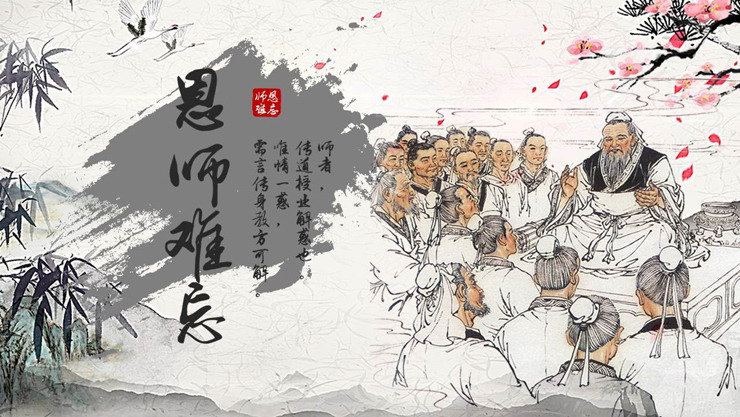 恩师难忘
师恩
难忘
师者，
传道授业解惑也。
唯情一惑，
需言传身教方可解。